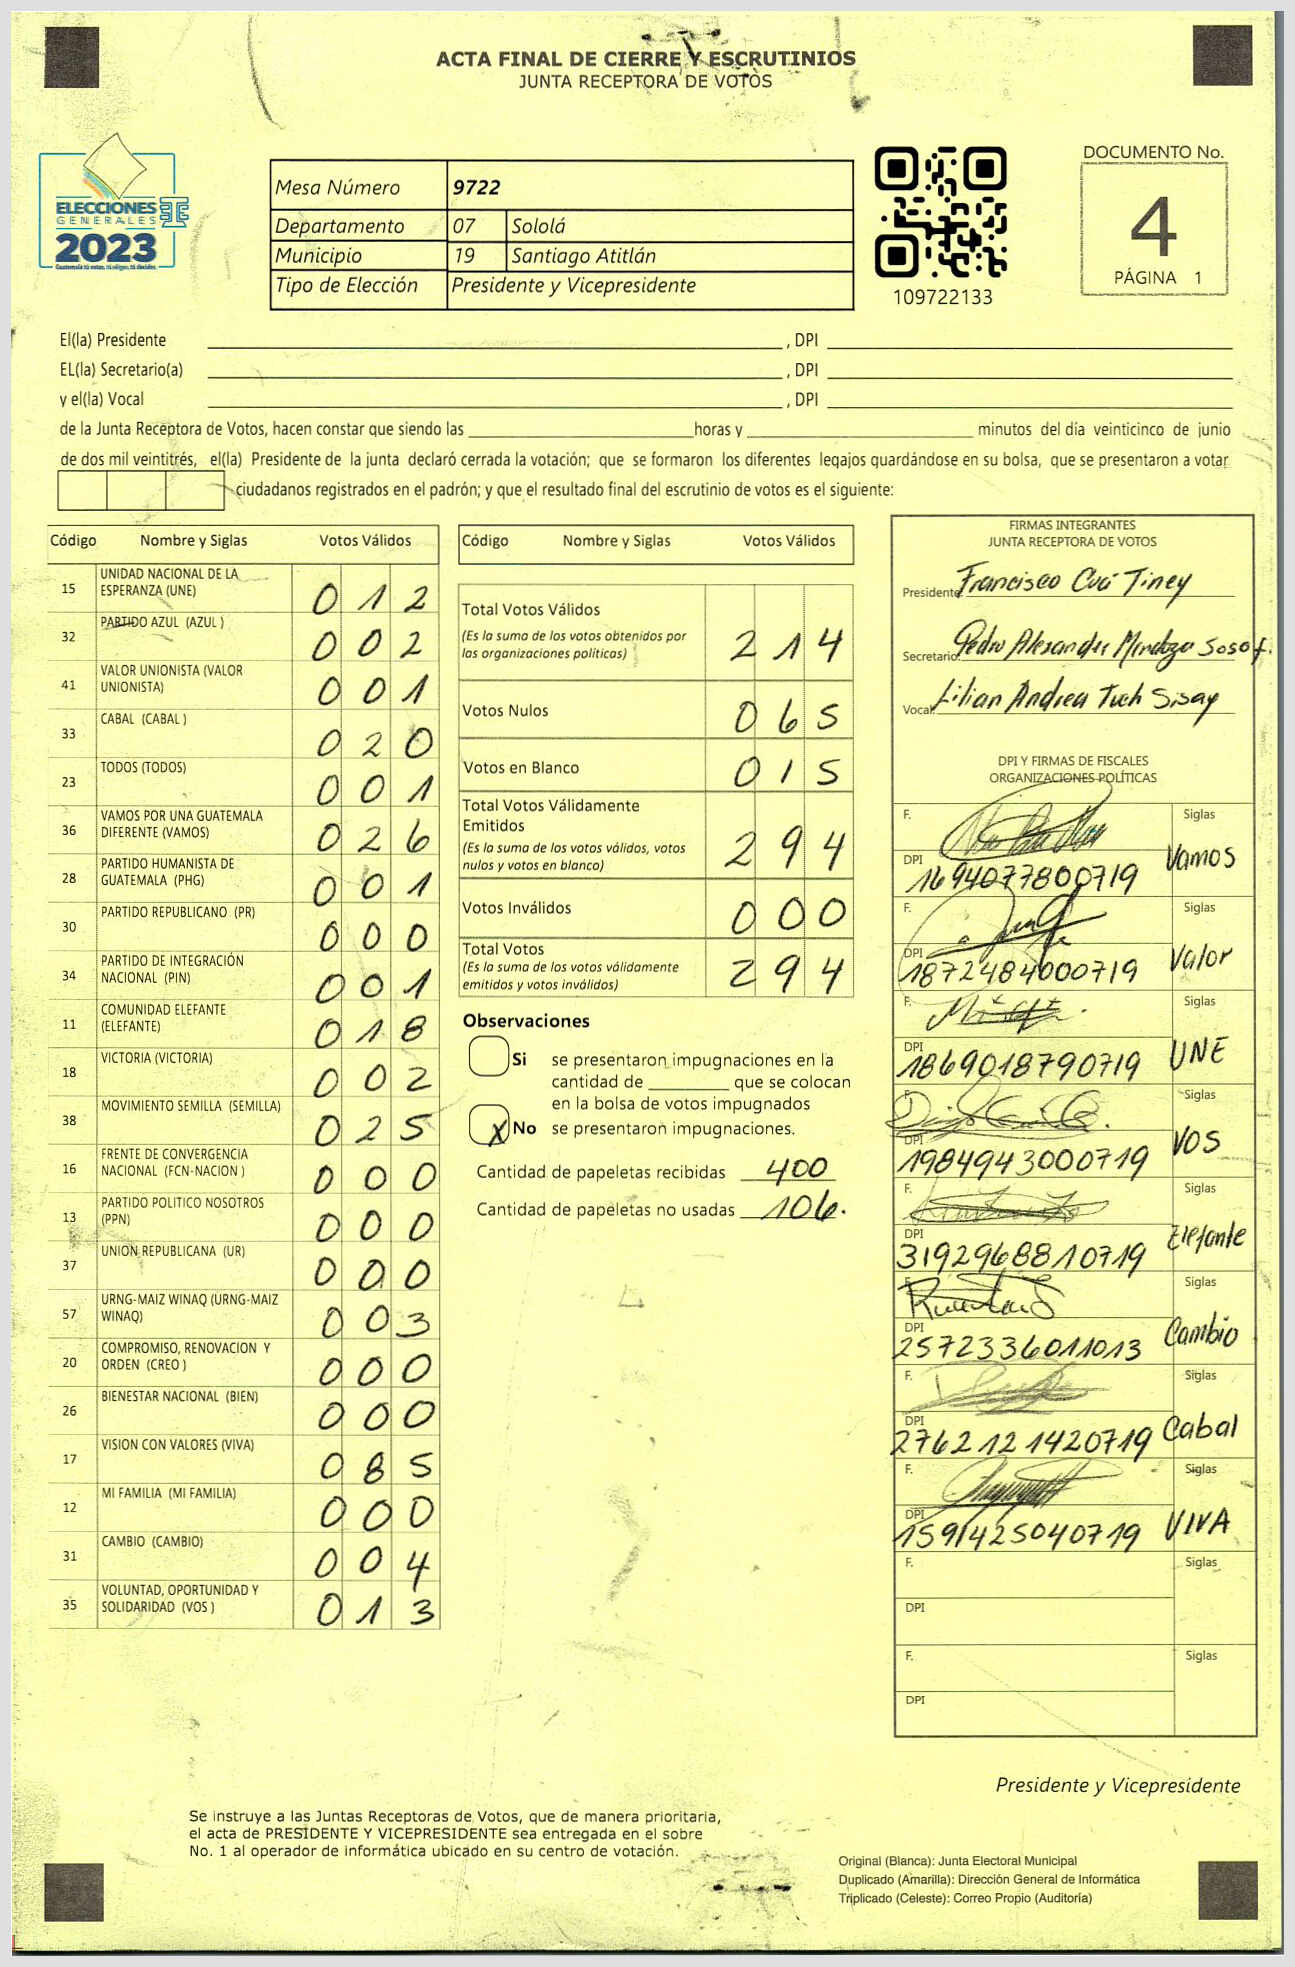 ACTA FINAL DE CIERRE Y ESCRUTINIOS
JUNTA RECEPTORA DE VOTOS
ELECCIONES
GENERALES
2023
Guatemala tú votas, tú eliges, tú decides
Mesa Número 9722
Departamento 07 Sololá
Municipio 19 Santiago Atitlán
Tipo de Elección Presidente y Vicepresidente
109722133
DOCUMENTO No.
4
PÁGINA 1
El(la) Presidente , DPI
EL(la) Secretario(a) , DPI
y el(la) Vocal , DPI
de la Junta Receptora de Votos, hacen constar que siendo las horas y minutos del día veinticinco de junio
de dos mil veintitrés, el(la) Presidente de la junta declaró cerrada la votación; que se formaron los diferentes legajos guardándose en su bolsa, que se presentaron a votar
ciudadanos registrados en el padrón; y que el resultado final del escrutinio de votos es el siguiente:
Código Nombre y Siglas Votos Válidos
15 UNIDAD NACIONAL DE LA ESPERANZA (UNE) 0 1 2
32 PARTIDO AZUL (AZUL ) 0 0 2
41 VALOR UNIONISTA (VALOR UNIONISTA) 0 0 1
33 CABAL (CABAL ) 0 2 0
23 TODOS (TODOS) 0 0 1
36 VAMOS POR UNA GUATEMALA DIFERENTE (VAMOS) 0 2 6
28 PARTIDO HUMANISTA DE GUATEMALA (PHG) 0 0 1
30 PARTIDO REPUBLICANO (PR) 0 0 0
34 PARTIDO DE INTEGRACIÓN NACIONAL (PIN) 0 0 1
11 COMUNIDAD ELEFANTE (ELEFANTE) 0 1 8
18 VICTORIA (VICTORIA) 0 0 2
38 MOVIMIENTO SEMILLA (SEMILLA) 0 2 5
16 FRENTE DE CONVERGENCIA NACIONAL (FCN-NACION ) 0 0 0
13 PARTIDO POLITICO NOSOTROS (PPN) 0 0 0
37 UNION REPUBLICANA (UR) 0 0 0
57 URNG-MAIZ WINAQ (URNG-MAIZ WINAQ) 0 0 3
20 COMPROMISO, RENOVACION Y ORDEN (CREO ) 0 0 0
26 BIENESTAR NACIONAL (BIEN) 0 0 0
17 VISION CON VALORES (VIVA) 0 8 5
12 MI FAMILIA (MI FAMILIA) 0 0 0
31 CAMBIO (CAMBIO) 0 0 4
35 VOLUNTAD, OPORTUNIDAD Y SOLIDARIDAD (VOS ) 0 1 3
Código Nombre y Siglas Votos Válidos
Total Votos Válidos 2 1 4
(Es la suma de los votos obtenidos por
las organizaciones políticas)
Votos Nulos 0 6 5
Votos en Blanco 0 1 5
Total Votos Válidamente
Emitidos 2 9 4
(Es la suma de los votos válidos, votos
nulos y votos en blanco)
Votos Inválidos 0 0 0
Total Votos 2 9 4
(Es la suma de los votos válidamente
emitidos y votos inválidos)
Observaciones
Si se presentaron impugnaciones en la
cantidad de que se colocan
en la bolsa de votos impugnados
X No se presentaron impugnaciones.
Cantidad de papeletas recibidas 400
Cantidad de papeletas no usadas 106.
FIRMAS INTEGRANTES
JUNTA RECEPTORA DE VOTOS
Presidente: Francisco Cuá Tiney
Secretario: Pedro Alexander Mendoza Sosof.
Vocal: Lilian Andrea Tuch Sisay
DPI Y FIRMAS DE FISCALES
ORGANIZACIONES POLÍTICAS
F. Siglas
DPI 1694077800719 Vamos
F. Siglas
DPI 1872484000719 Valor
F. Siglas
DPI 1869018790719 UNE
F. Siglas
DPI 1984943000719 VOS
F. Siglas
DPI 3192968810719 Elefante
F. Siglas
DPI 2572336011013 Cambio
F. Siglas
DPI 2762121420719 Cabal
F. Siglas
DPI 1591425040719 VIVA
F. Siglas
DPI
F. Siglas
DPI
Presidente y Vicepresidente
Se instruye a las Juntas Receptoras de Votos, que de manera prioritaria,
el acta de PRESIDENTE Y VICEPRESIDENTE sea entregada en el sobre
No. 1 al operador de informática ubicado en su centro de votación.
Original (Blanca): Junta Electoral Municipal
Duplicado (Amarilla): Dirección General de Informática
Triplicado (Celeste): Correo Propio (Auditoría)